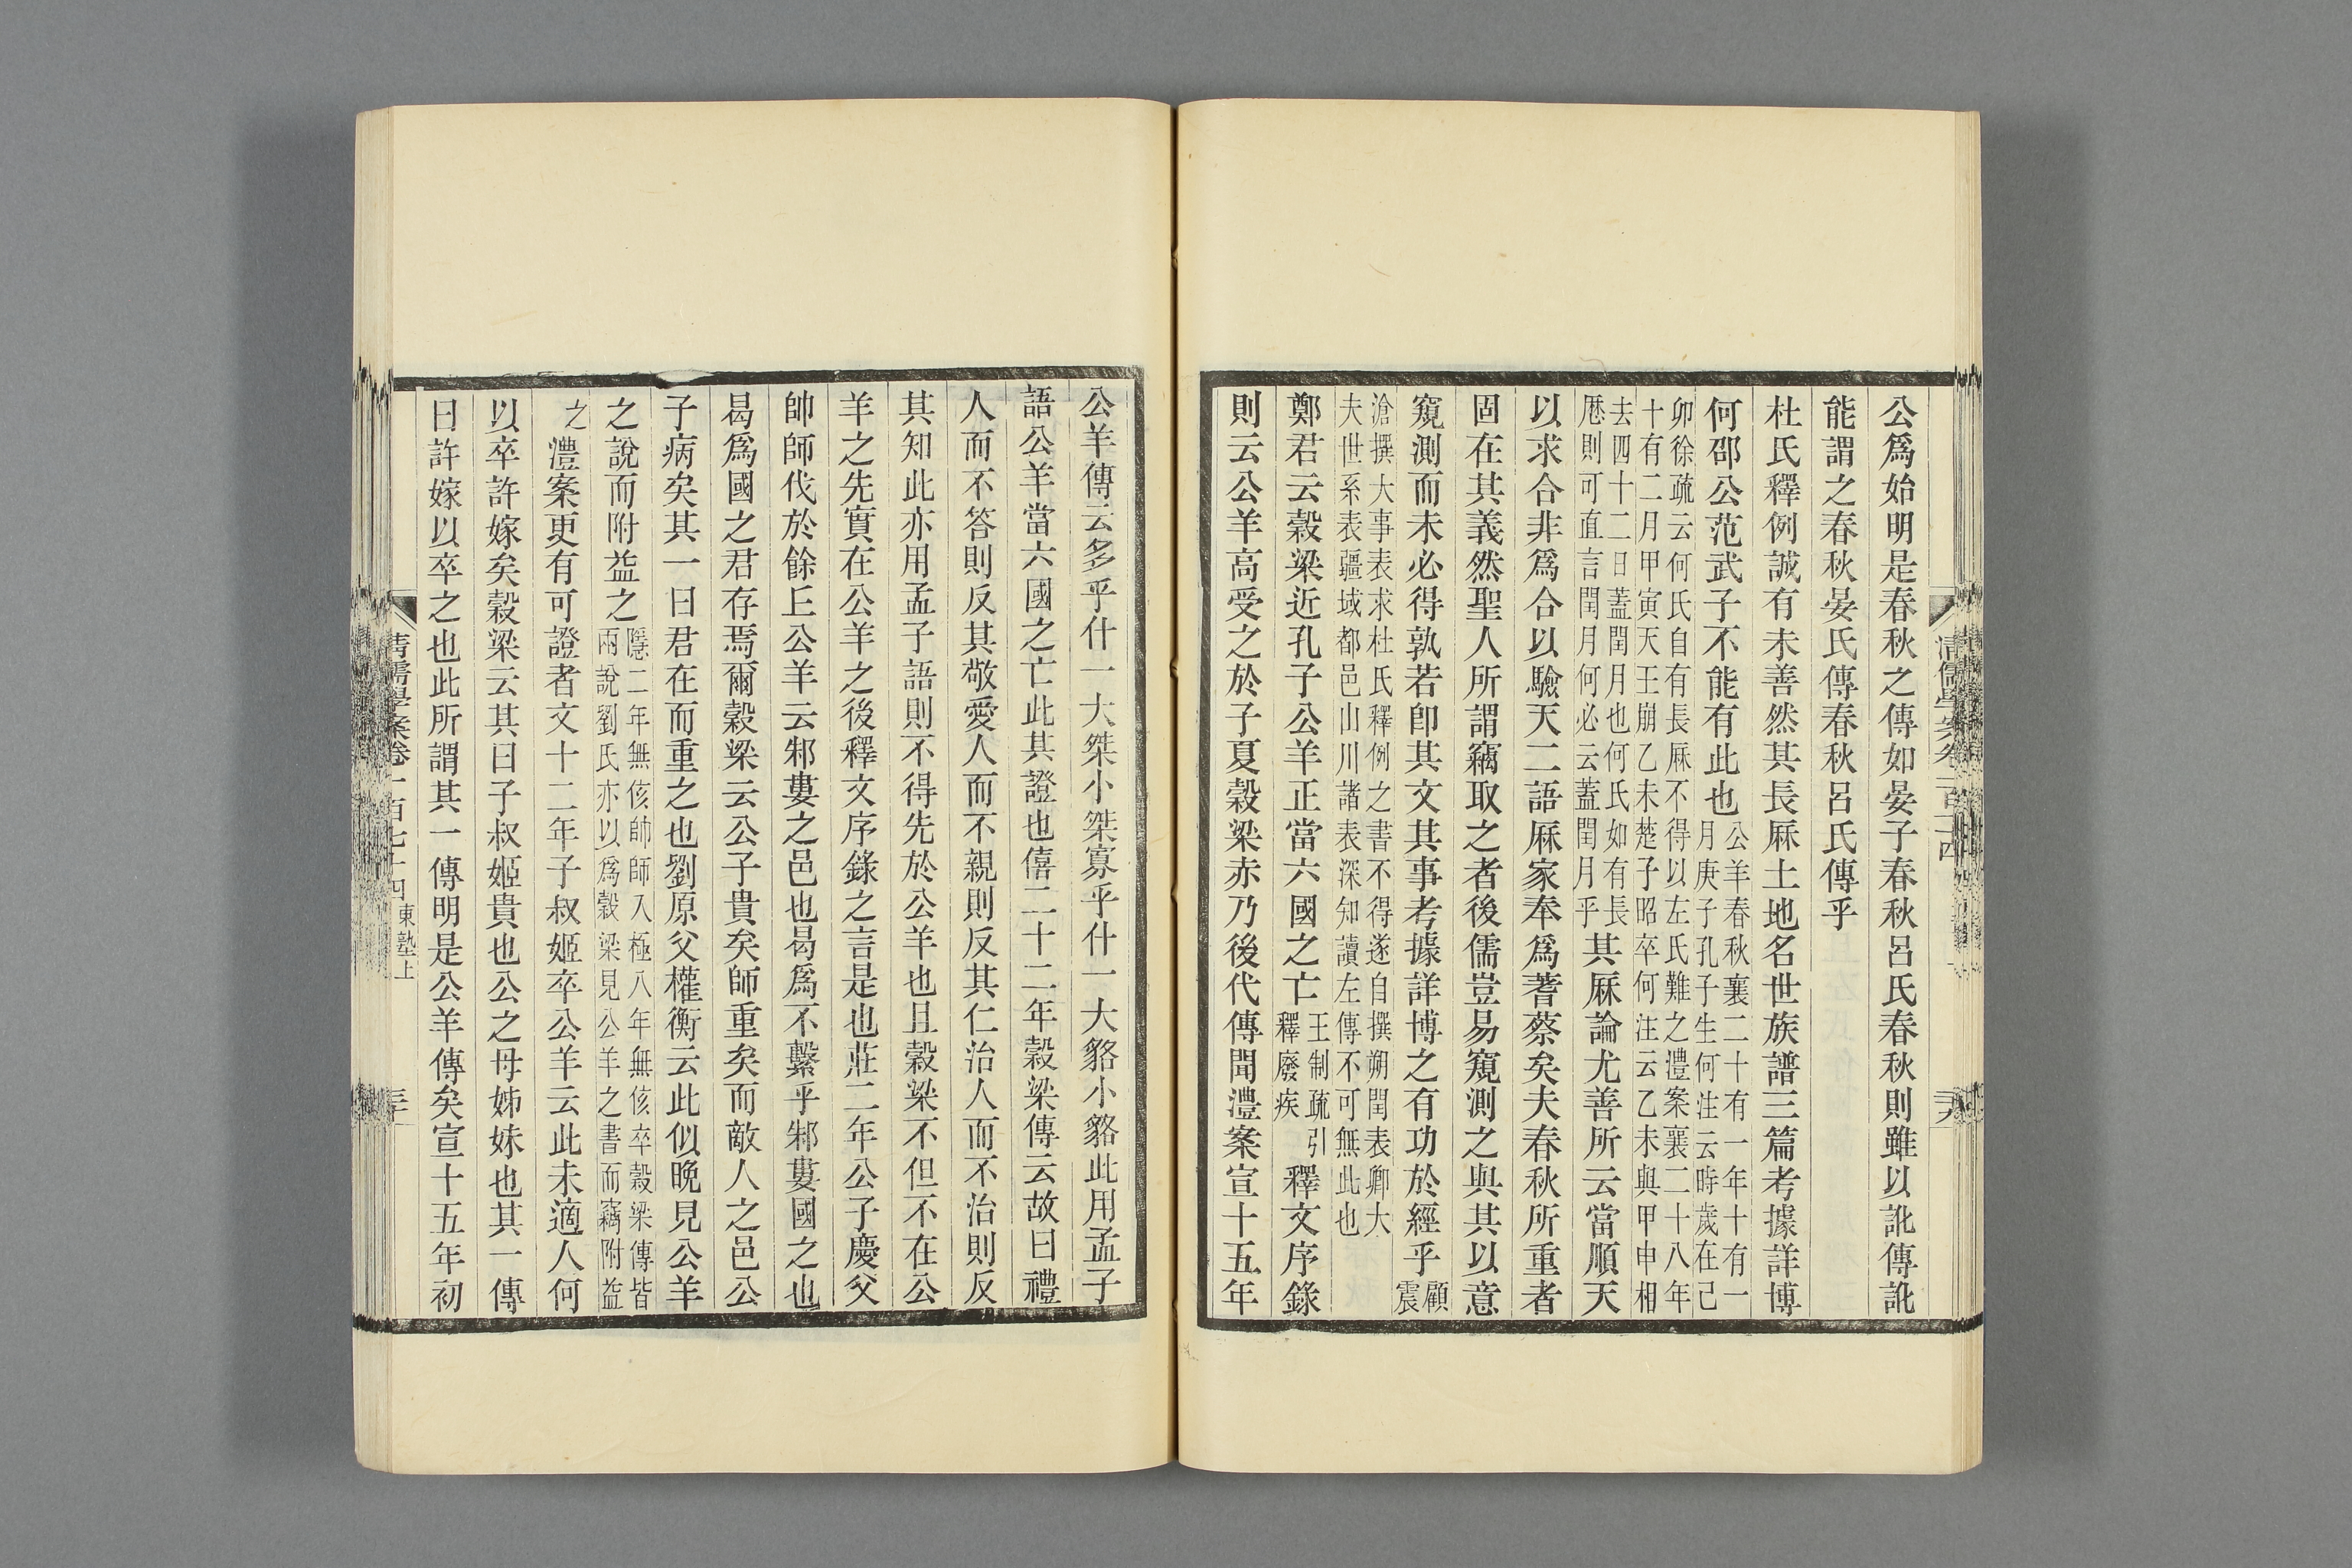 公爲始明是春秋之傳如晏子春秋呂氏春秋則雖以訛傳訛
能謂之春秋晏氏傳春秋呂氏傳乎
杜氏釋例誠有未善然其長厤土地名世族譜三篇考據詳博
何邵公范武子不能有此也公羊春秋襄二十有一年十有一
月庚子孔子生何注云時歲在己
卯徐疏云何氏自有長厤不得以左氏難之澧案襄二十八年
十有二月甲寅天王崩乙未楚子昭卒何注云乙未與甲申相
去四十二日蓋閏月也何氏如有長
厤則可直言閏月何必云蓋閏月乎其厤論尤善所云當順天
以求合非爲合以驗天二語厤家奉爲蓍蔡矣夫春秋所重者
固在其義然聖人所謂竊取之者後儒豈易窺測之與其以意
窺測而未必得孰若卽其文其事考據詳博之有功於經乎顧
震
滄撰大事表求杜氏釋例之書不得遂自撰朔閏表卿大
夫世系表疆域都邑山川諸表深知讀左傳不可無此也
鄭君云穀梁近孔子公羊正當六國之亡王制疏引
釋廢疾釋文序錄
則云公羊高受之於子夏穀梁赤乃後代傳聞澧案宣十五年
清儒學案卷一百七十四
公羊傳云多乎什一大桀小桀寡乎什一大貉小貉此用孟子
語公羊當六國之亡此其證也僖二十二年穀梁傳云故曰禮
人而不答則反其敬愛人而不親則反其仁治人而不治則反
其知此亦用孟子語則不得先於公羊也且穀梁不但不在公
羊之先實在公羊之後釋文序錄之言是也莊二年公子慶父
帥師伐於餘丘公羊云邾婁之邑也曷爲不繫乎邾婁國之也
曷爲國之君存焉爾穀梁云公子貴矣師重矣而敵人之邑公
子病矣其一曰君在而重之也劉原父權衡云此似晚見公羊
之說而附益之隱二年無侅帥師入極八年無侅卒穀梁傳皆
兩說劉氏亦以爲穀梁見公羊之書而竊附益
之澧案更有可證者文十二年子叔姬卒公羊云此未適人何
以卒許嫁矣穀梁云其曰子叔姬貴也公之母姊妹也其一傳
曰許嫁以卒之也此所謂其一傳明是公羊傳矣宣十五年初
清儒學案卷一百七十四 東塾上